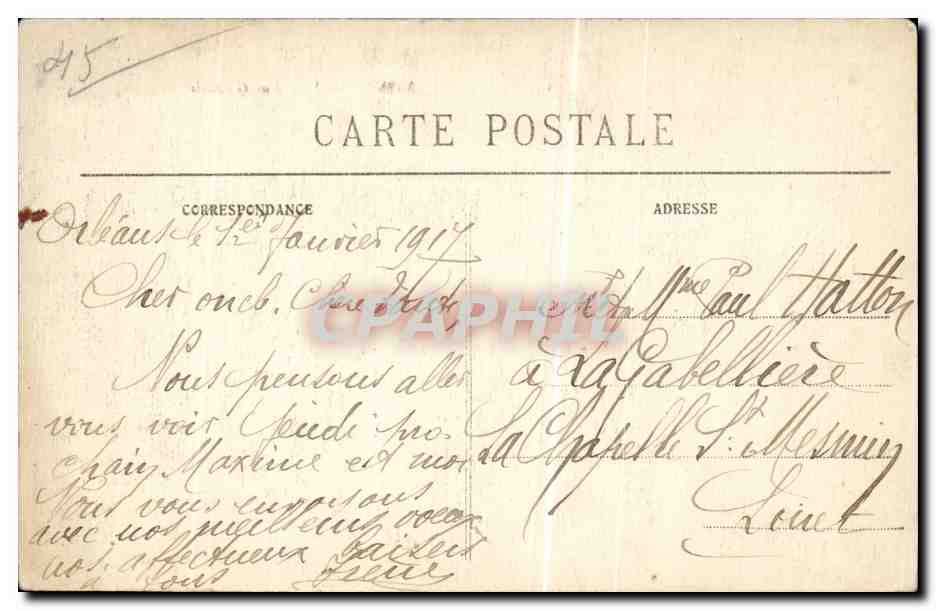 45
CARTE POSTALE
CORRESPONDANCE
Orléans le 1er Janvier 1917
Cher oncle, Chère Tante,
Nous pensons aller
vous voir Jeudi pro-
chain, Maxime et moi
Nous vous envoyons
avec nos meilleurs voeux
nos affectueux baisers
à tous Irène
ADRESSE
Mme Paul Hatton
à La Gabellière
La Chapelle St. Mesmin
Loiret
CPAPHIL